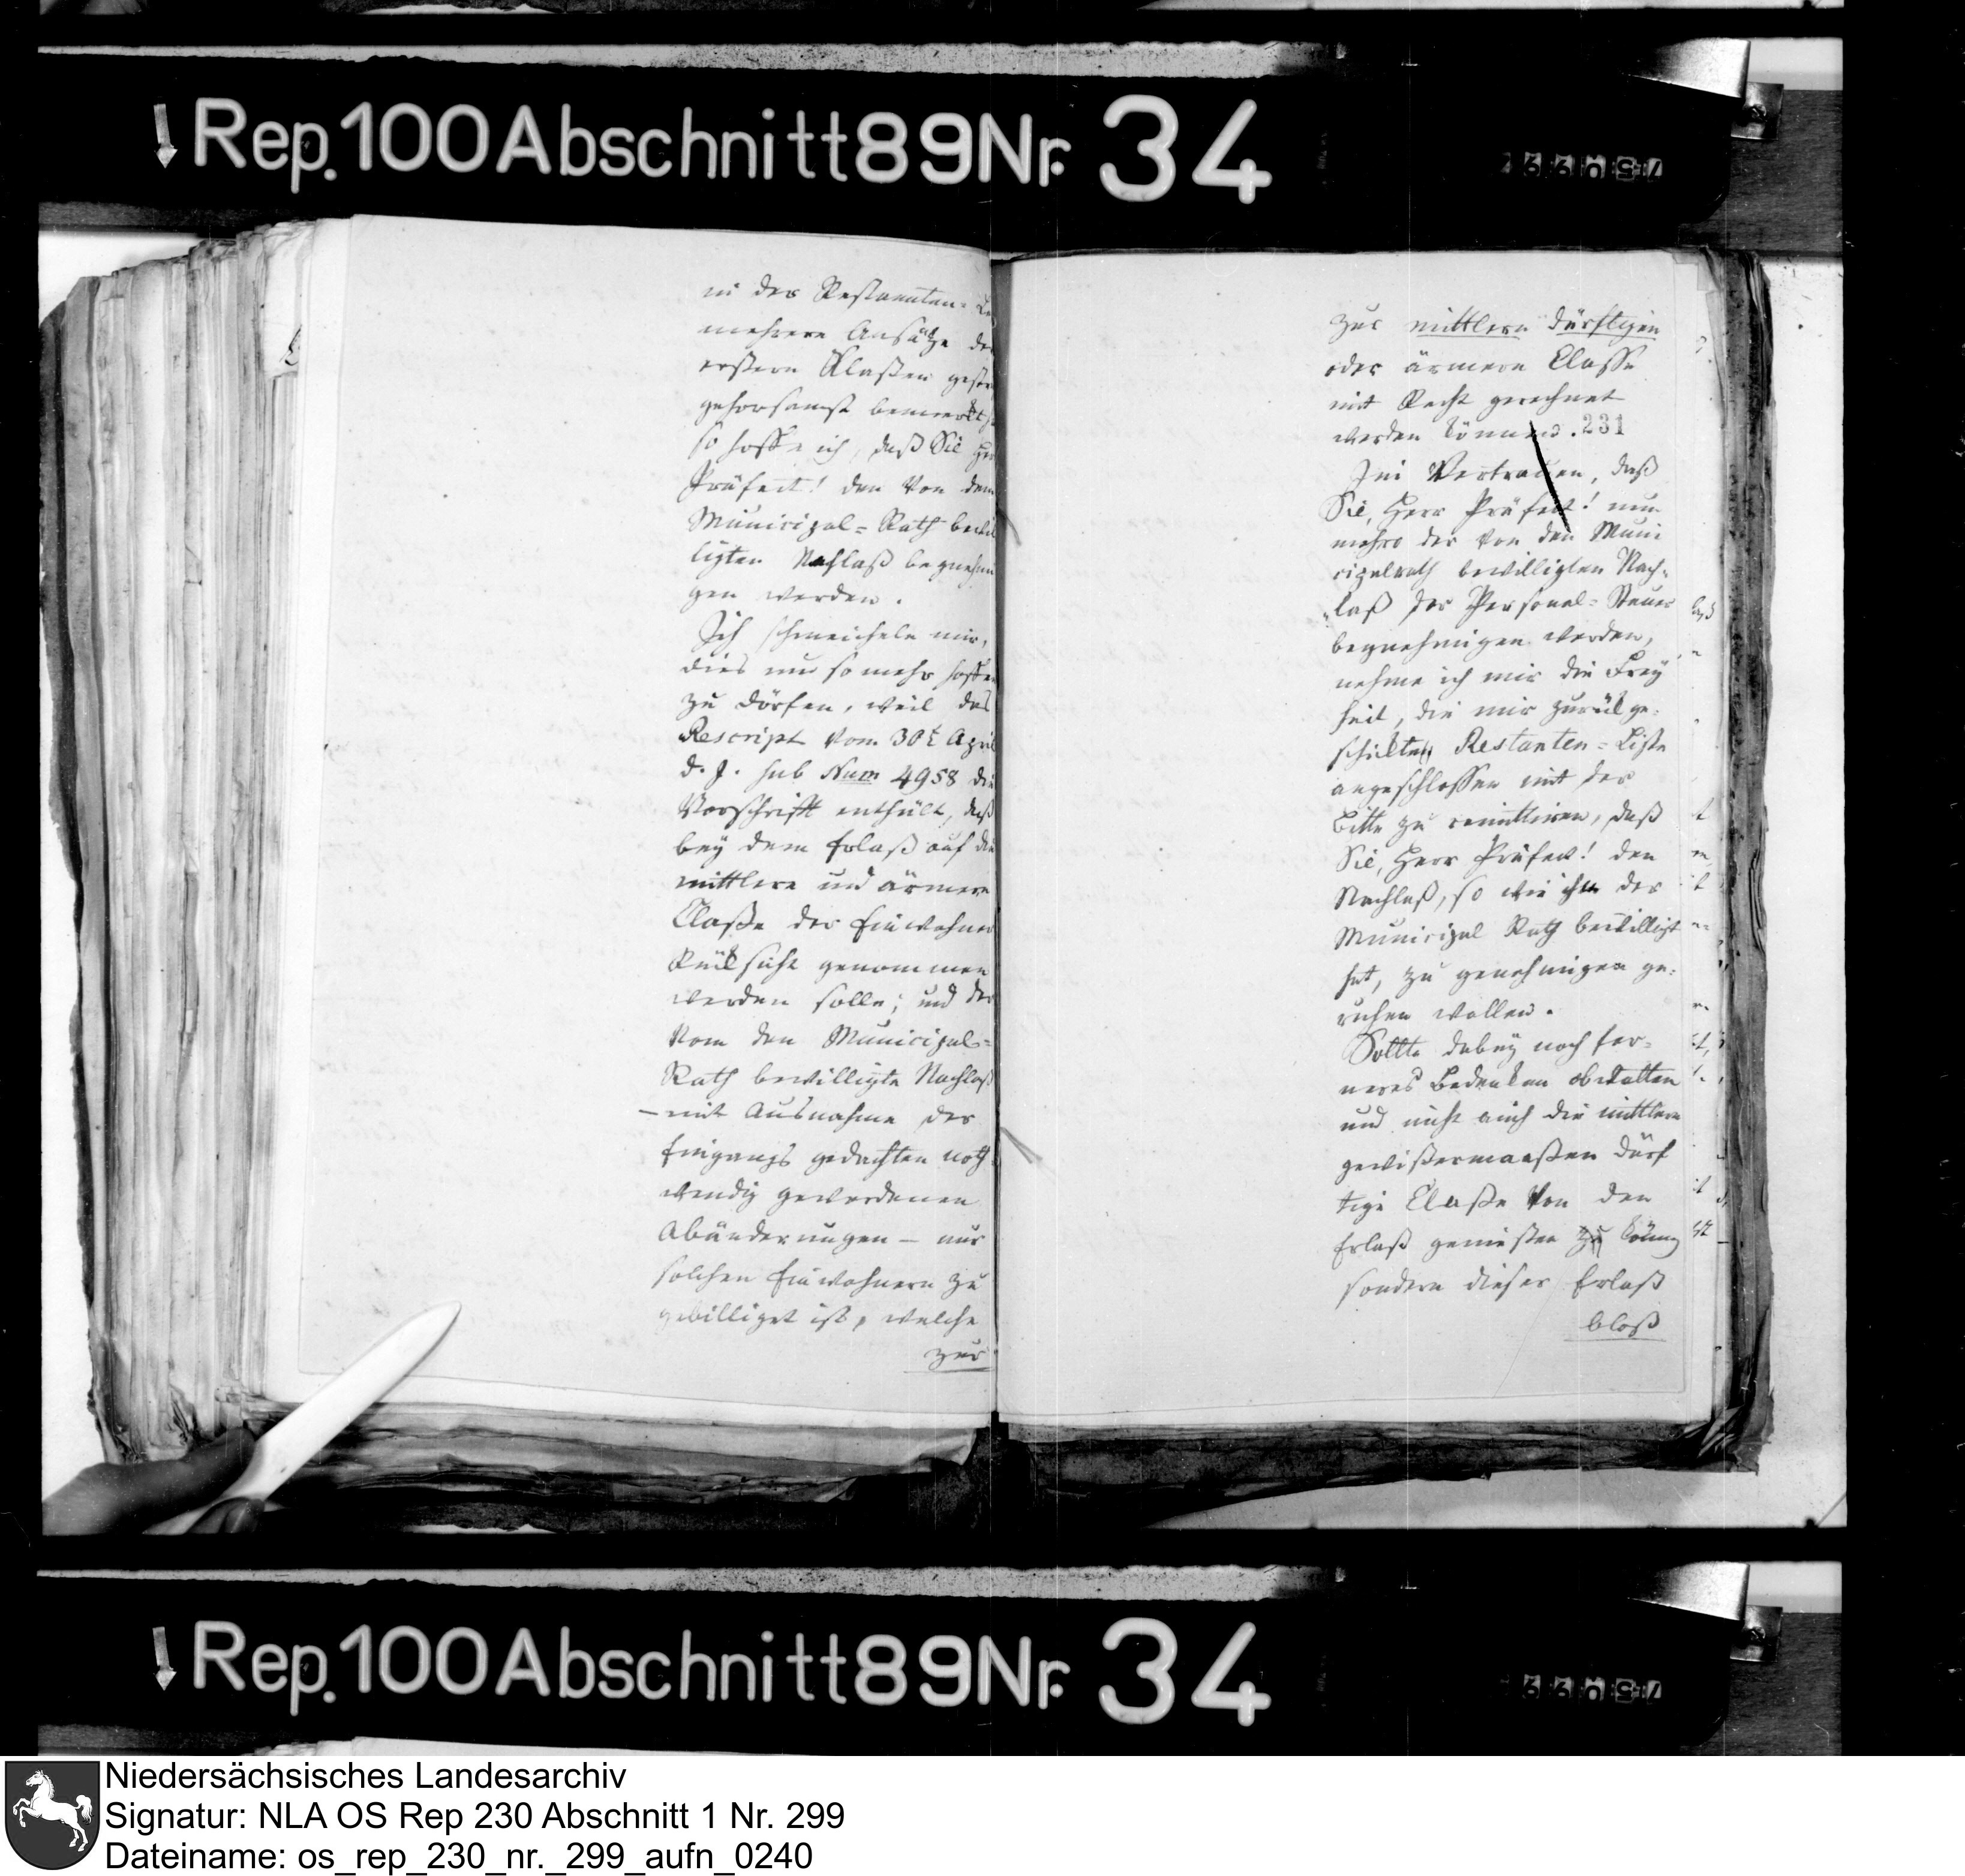 Rep.100 Abschnitt 89 Nr. 34
in der Restanten-
mehrere Ansätze
erstern Klaßen
gehorsamst bemerkt
so hoffe ich, daß Sie
Präfect! den von dem
Municipal-Rath bewil
ligten Nachlaß begnehmi
gen werden.
Ich schmeichele mir,
dies um so mehr hoffen
zu dörfen, weil das
Rescript vom 30t April
d. J. sub Num 4958 die
Vorschrift enthält, daß
bey dem Erlaß auf die
mittlere und ärmere
Claße der Einwohner
Rüksicht genommen
werden solle; und der
vom den Municipal-
Rath bewilligte Nachlaß
– mit Ausnahme der
Eingangs gedachten noth
wendig gewordenen
Abänderungen – nur
solchen Einwohnern zu
gebilliget ist, welche
zur
zur mittlern dürftigen
oder ärmern Classe
mit Recht gerechnet
werden können.
231
Im Vertrauen, daß
Sie, Herr Präfect! nun
mehro der von den Muni
cipalrath bewilligten Nach-
laß der Personal-Steuer
begnehmigen werden,
nehme ich mir die Frey
heit, die mir zurükge-
schikten Restanten-Liste
angeschlossen mit der
Bitte zu remittiren, daß
Sie, Herr Präfect! den
Nachlaß, so wie ihn der
Municipal Rath bewilligt
hat, zu genehmigen ge-
ruhen wollen.
Sollte dabey noch fer-
neres Bedenken obwalten
und nicht auch die mittlere
gewißermaaßen dürf
tige Claße von den
Erlaß genießen zu können
sondern dieser Erlaß
bloß
Rep.100 Abschnitt 89 Nr. 34
Niedersächsisches Landesarchiv
Signatur: NLA OS Rep 230 Abschnitt 1 Nr. 299
Dateiname: os_rep_230_nr._299_aufn_0240